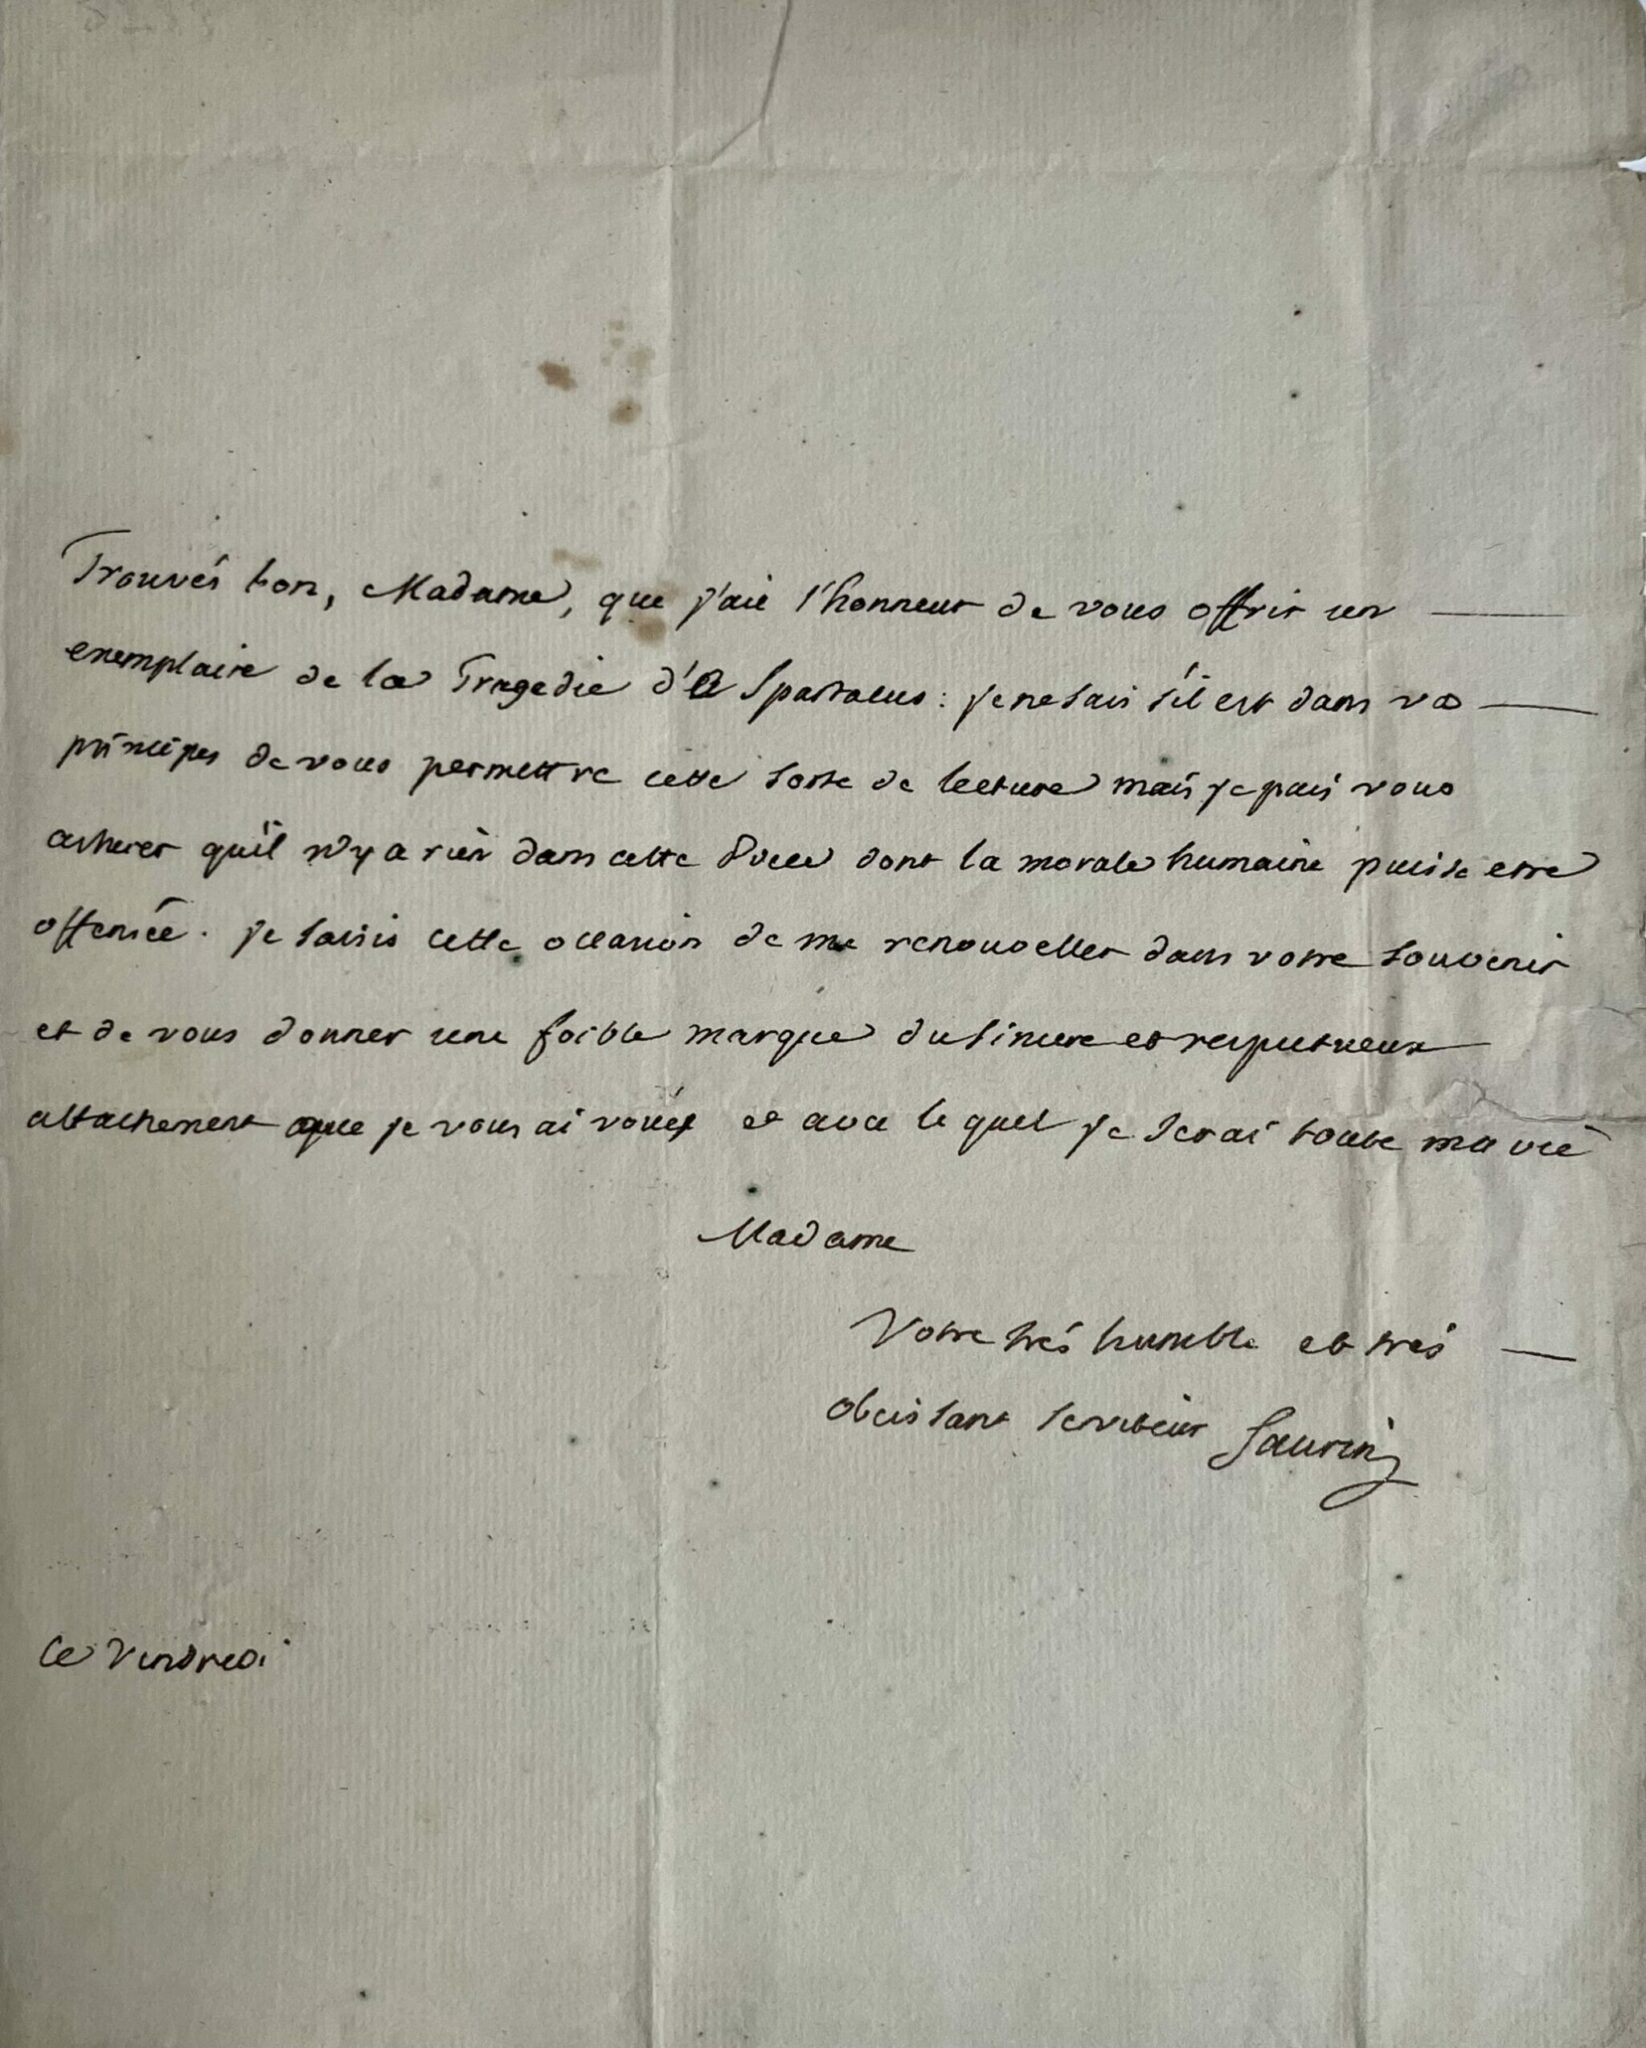 Trouvés bon, Madame, que j'aie l'honneur de vous offrir un
exemplaire de la Tragedie de Spartacus : je ne sais s'il est dans vos
principes de vous permettre cette sorte de lecture mais je puis vous
assurer qu'il n'y a rien dans cette Piece dont la morale humaine puisse etre
offensée. je saisis cette occasion de me renouveller dans votre souvenir
et de vous donner une foible marque du sincere et respectueux
attachement que je vous ai voué et avec le quel je serai toute ma vie
Madame
Votre trés humble et trés
obeissant serviteur Saurin
Ce Vendredi